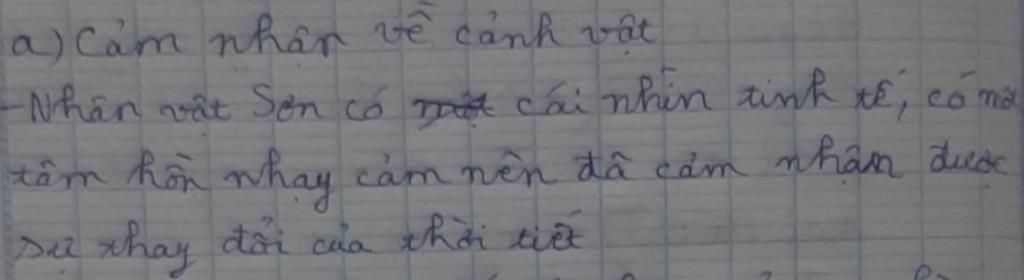 a) Cảm nhận về cảnh vật
- Nhân vật Sơn có cái nhìn tinh tế, có một
tâm hồn nhạy cảm nên đã cảm nhận được
sự thay đổi của thời tiết